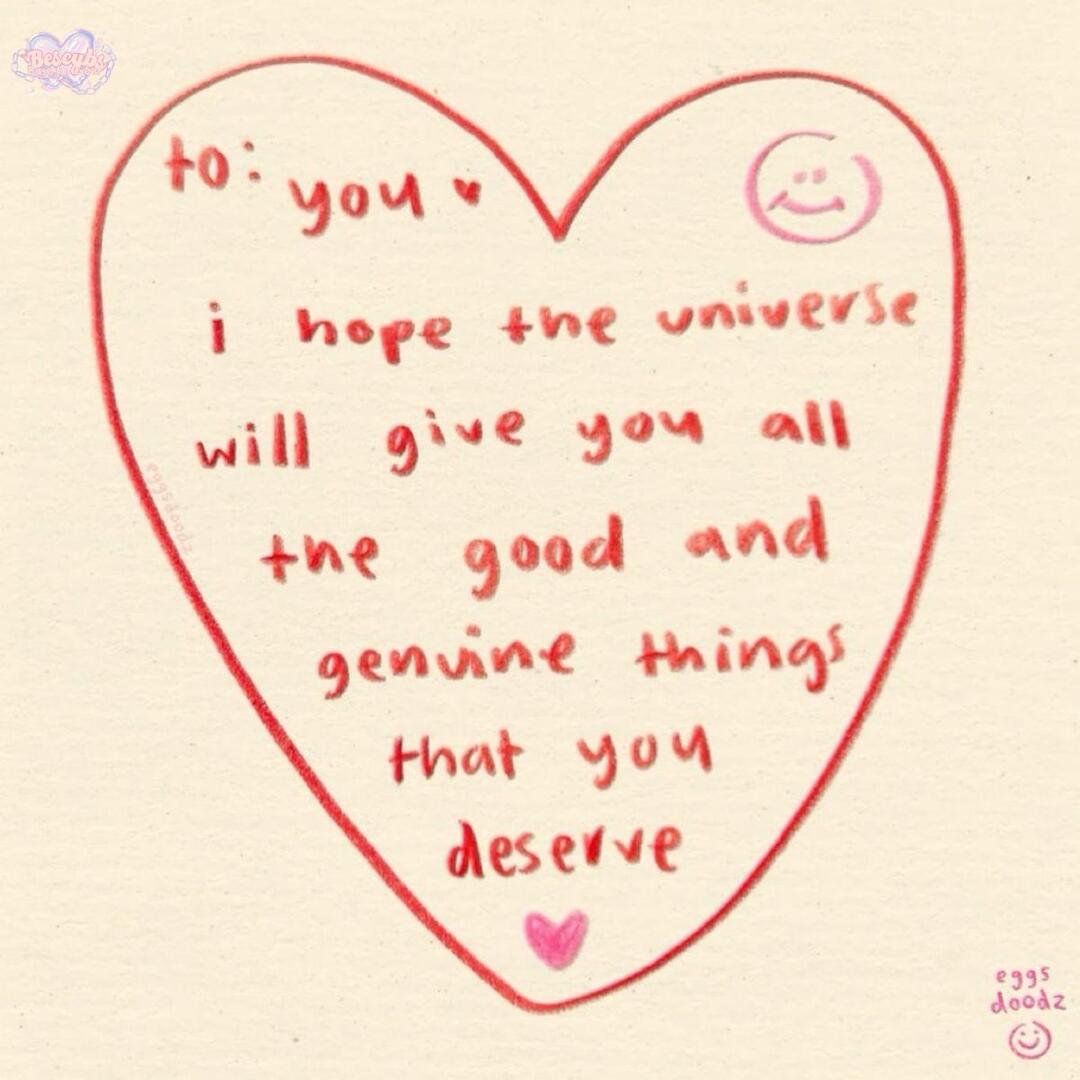 Bescubs
to: you
i hope the universe
will give you all
the good and
genuine things
that you
deserve
eggsdoodz
eggs
doodz